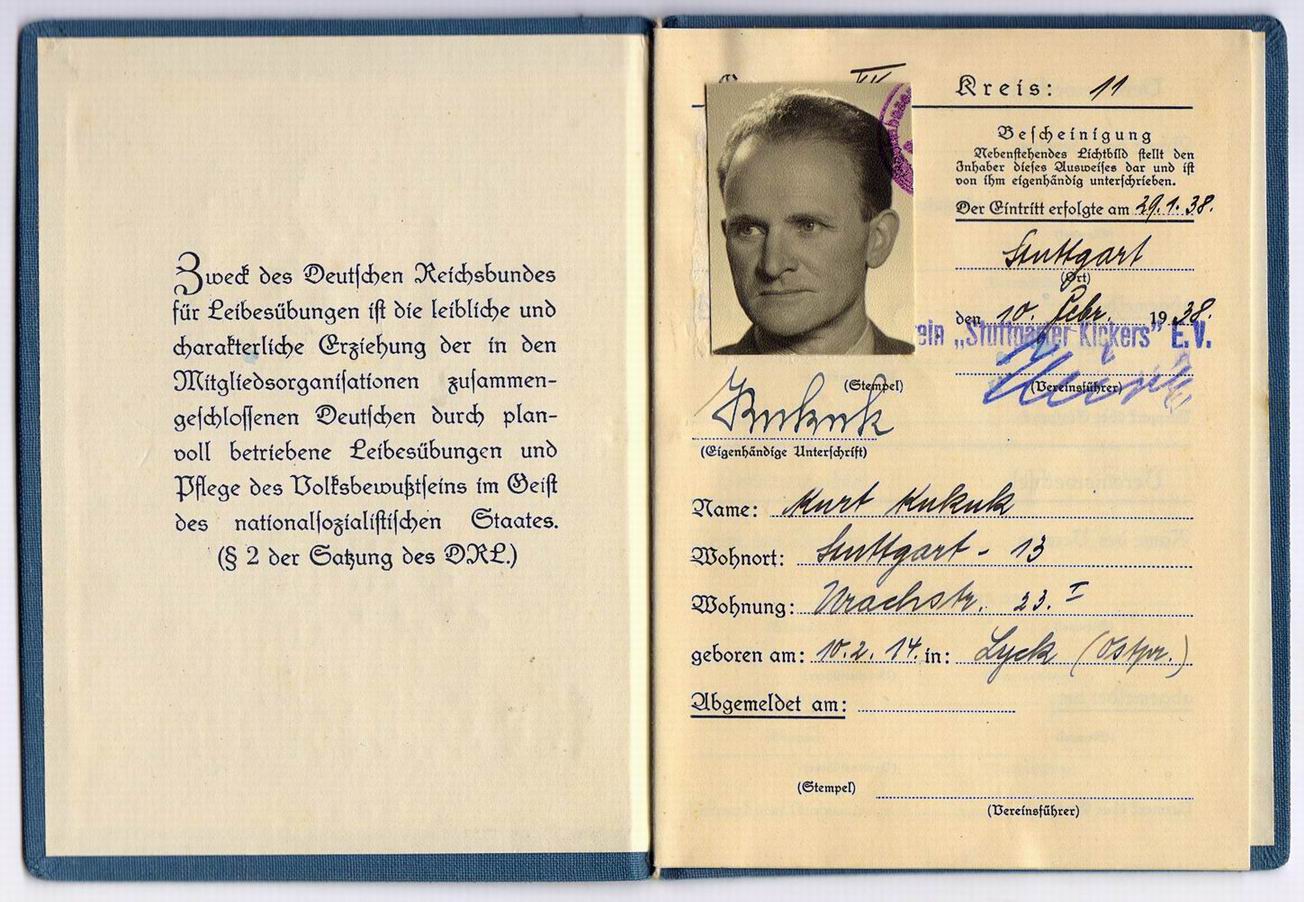 Zweck des Deutschen Reichsbundes
für Leibesübungen ist die leibliche und
charakterliche Erziehung der in den
Mitgliedsorganisationen zusammen-
geschlossenen Deutschen durch plan-
voll betriebene Leibesübungen und
Pflege des Volksbewußtseins im Geist
des nationalsozialistischen Staates.
(§ 2 der Satzung des DRL.)
Kreis: 11
Bescheinigung
Nebenstehendes Lichtbild stellt den
Inhaber dieses Ausweises dar und ist
von ihm eigenhändig unterschrieben.
Der Eintritt erfolgte am 29.1.38.
Stuttgart
(Ort)
den 10. Febr. 1938.
ein „Stuttgarter Kickers" E.V.
(Stempel)
(Vereinsführer)
Kukuk
(Eigenhändige Unterschrift)
Name: Kurt Kukuk
Wohnort: Stuttgart - 13
Wohnung: Urachstr. 23. I
geboren am: 10.2.14. in: Lyck (Ostpr.)
Abgemeldet am:
(Stempel)
(Vereinsführer)